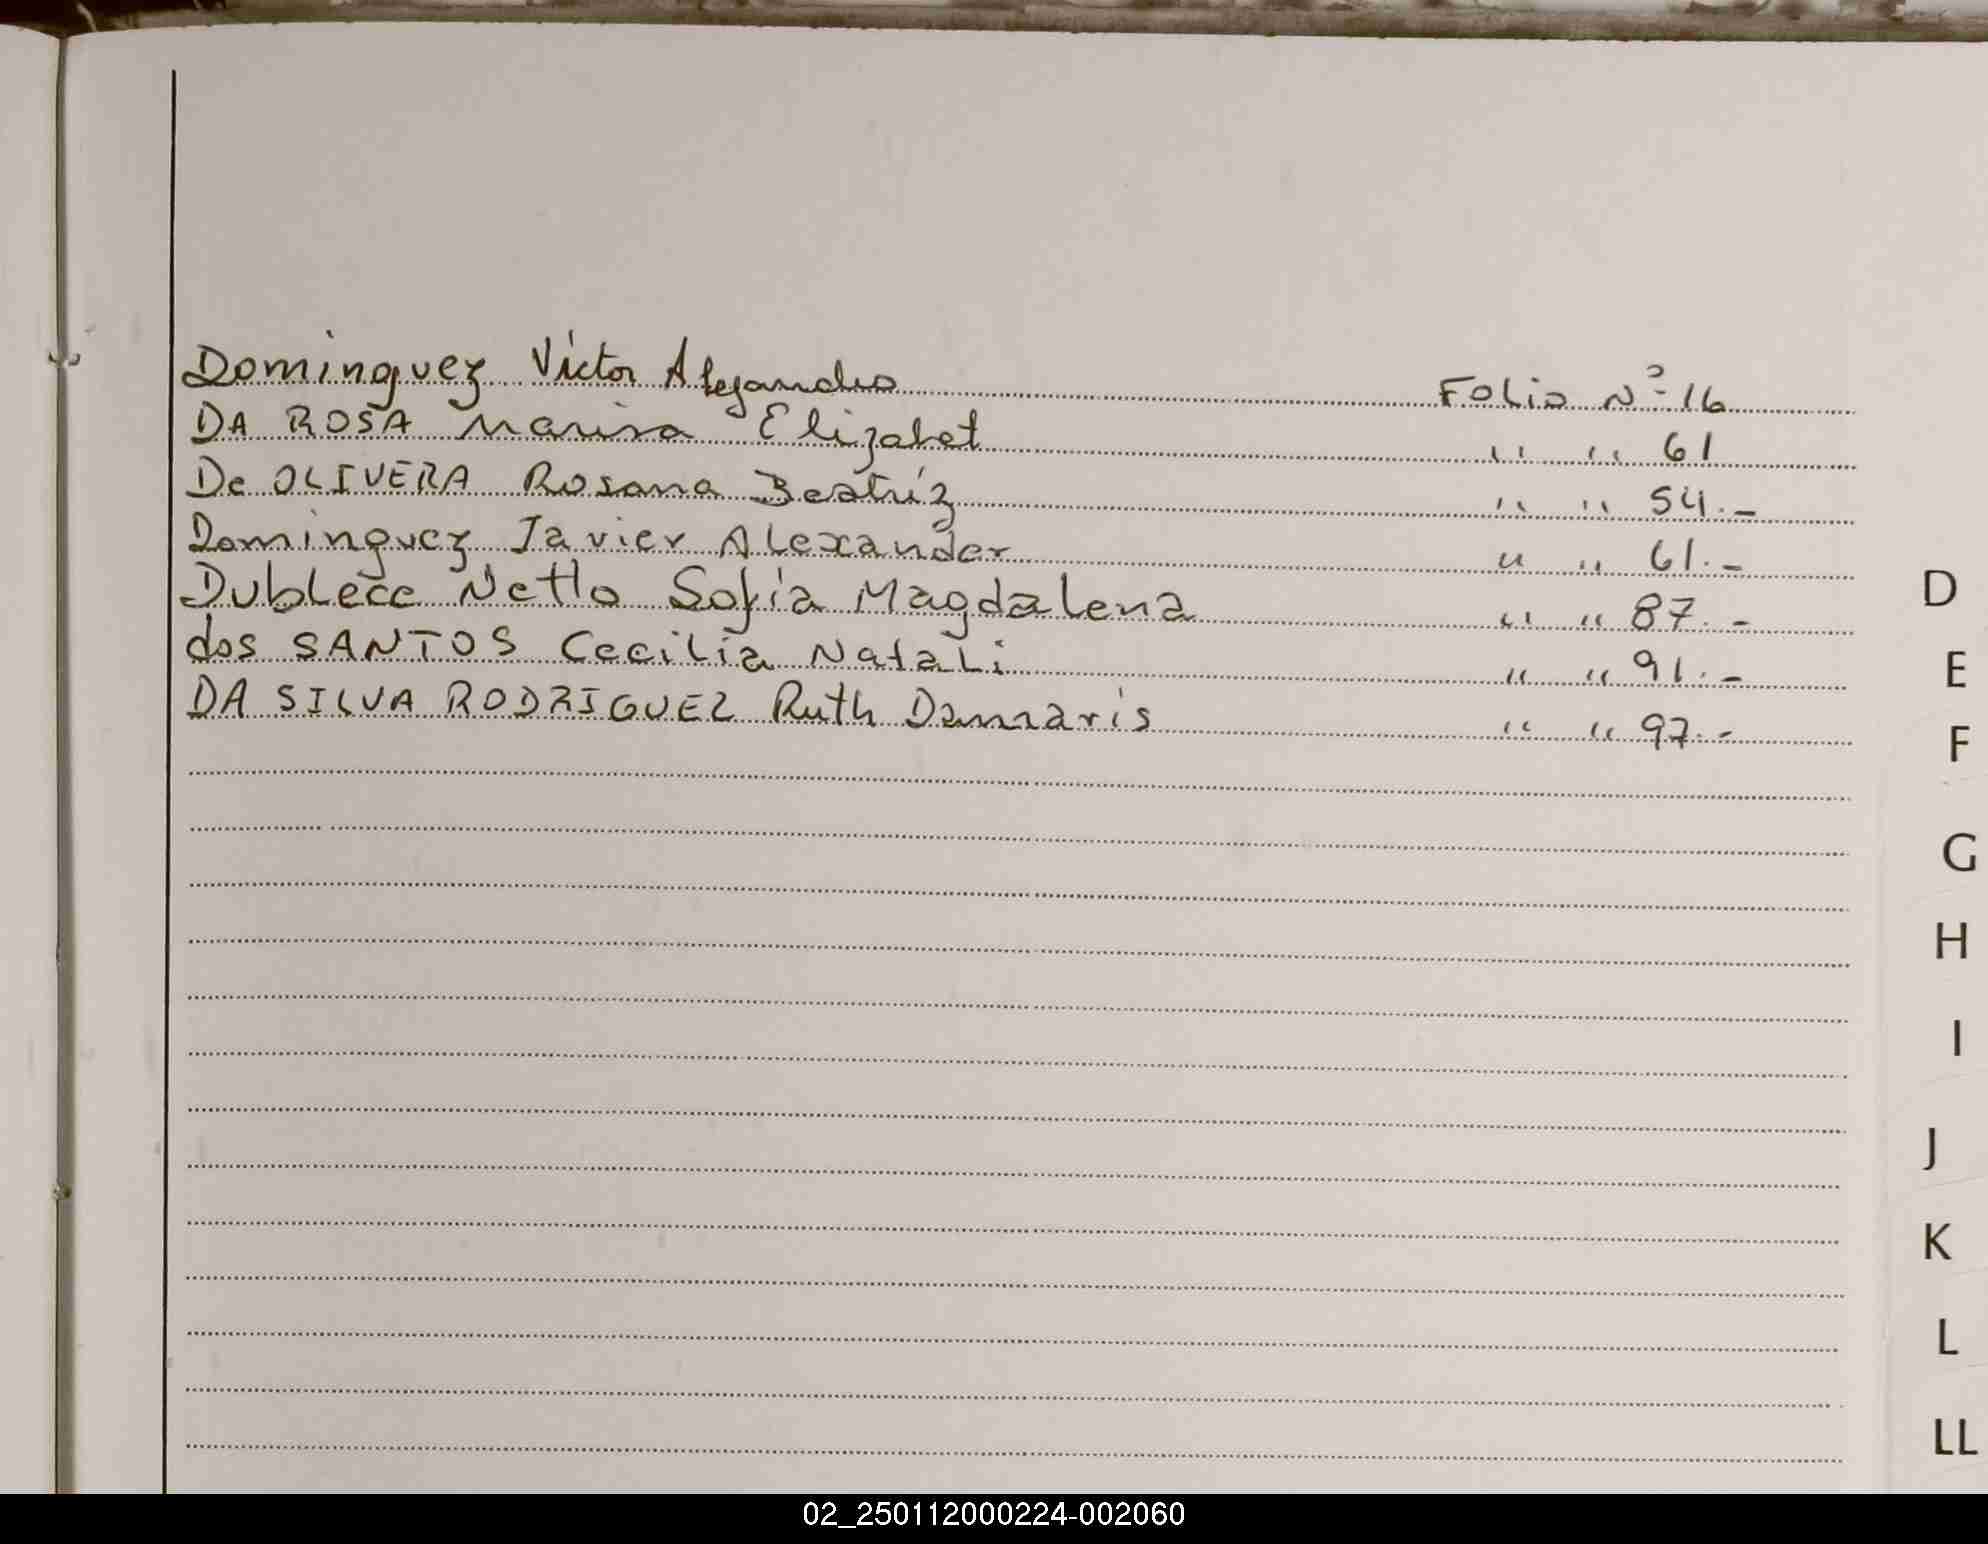 Dominguez Víctor Alejandro Folio Nº 16
DA ROSA Marisa Elizabet " " 61
De OLIVERA Rosana Beatríz " " 54.-
Dominguez Javier Alexander " " 61.-
Dublece Netto Sofía Magdalena " " 87.-
dos SANTOS Cecilia Natali " " 91.-
DA SILVA RODRIGUEZ Ruth Damaris " " 97.-
D
E
F
G
H
I
J
K
L
LL
02_250112000224-002060